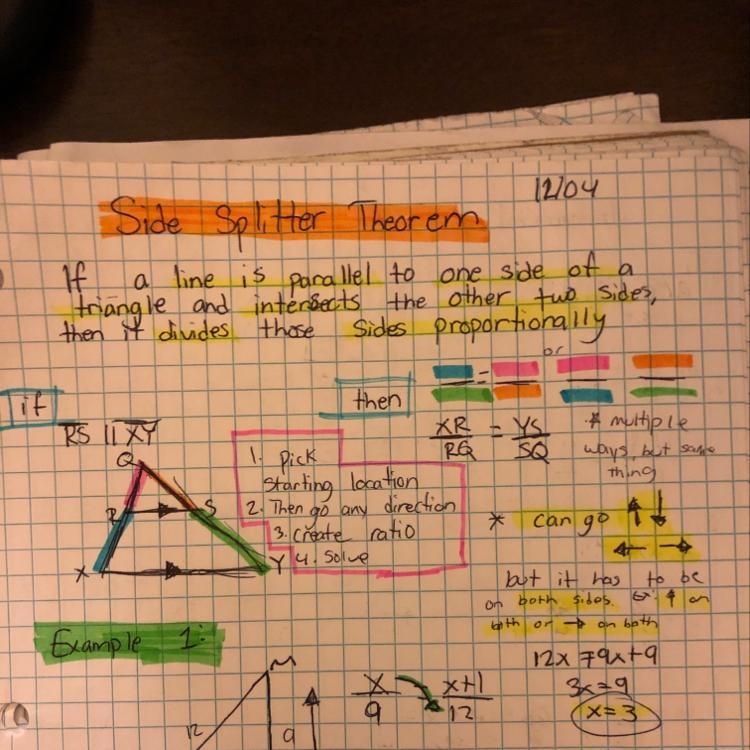 12/04
Side Splitter Theorem
If a line is parallel to one side of a
triangle and intersects the other two sides,
then it divides those sides proportionally
or
=
if
then
RS || XY
XR/RQ = YS/SQ
* multiple
ways, but same
thing
Q
R
S
X
Y
1. Pick
starting location
2. Then go any direction
3. create ratio
4. Solve
* can go ↑ ↓
← →
but it has to be
on both sides. ↑ on
both or → on both
Example 1:
M
12
9
x/9 x+1/12
12x = 9x+9
3x=9
x=3